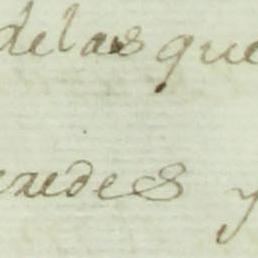 delas que
eredes y